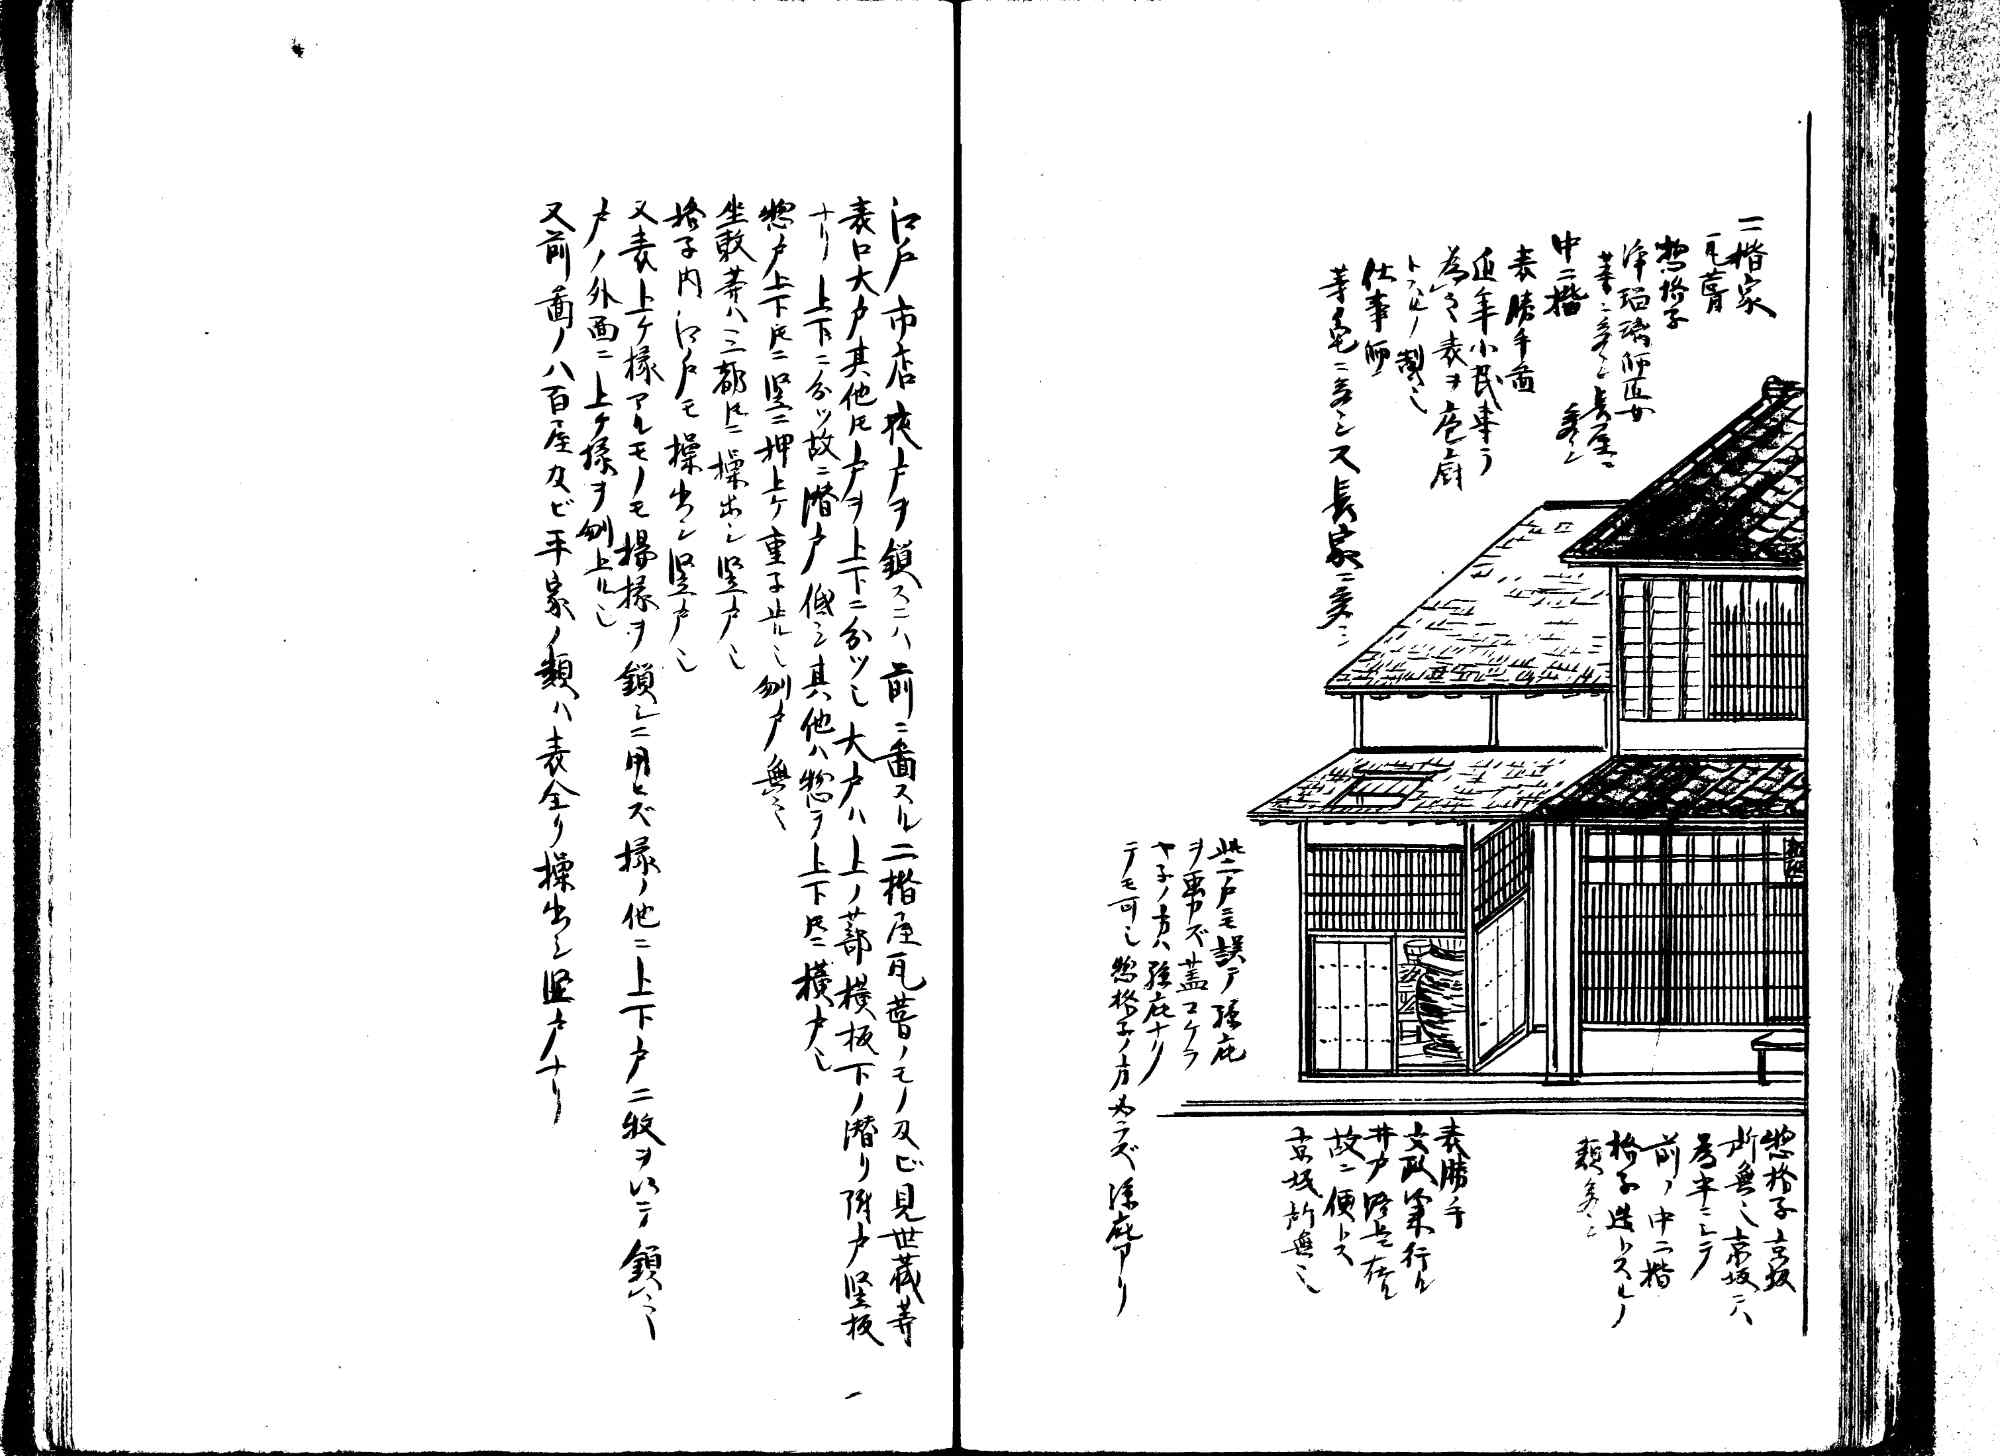 二階家
瓦葺
惣格子
浄瑠璃師匠女
等ニ多シ長屋ニ
多シ
中二階
表勝手図
近年小民専ラ
為之表ヲ庖厨
トスルノ製也
仕事師
等宅ニ多シス長家ニ多シ
此二戸モ誤テ孫庇
ヲ画カズ蓋コケラ
ヤネノ方ハ孫庇ナリ
テモ可也惣格子ノ方必ラズ孫庇アリ
惣格子京坂
所無也京坂ニハ
為半ニシテ
前ノ中二階
格子造トスルノ
類多シ
表勝手
文政來行ル
井戸路上ニ在ル
故ニ便トス
京坂所無也
江戸市店夜戸ヲ鎖スニハ前ニ図スル二階屋瓦葺ノモノ及ビ見世蔵等
表口大戸其他トモ戸ヲ上下ニ分ツ也大戸ハ上ノ蔀横板下ノ潜リ附戸竪板
ナリ上下ニ分ツ故ニ潜戸低シ其他ハ惣テ上下トモニ横戸也
惣戸上下トモニ竪ニ押上ケ重子止ル也 戸無之
坐敷等ハ三都トモニ操出シ竪戸也
格子内江戸モ操出シ竪戸也
又表上ケ椽アルモノモ揚椽ヲ鎖シニ用ヒズ椽ノ他ニ上下戸二枚ヲ以テ鎖之
戸ノ外面ニ上ケ椽ヲ 上ル也
又前図ノ八百屋及ビ平家ノ類ハ表全リ操出シ竪戸ナリ